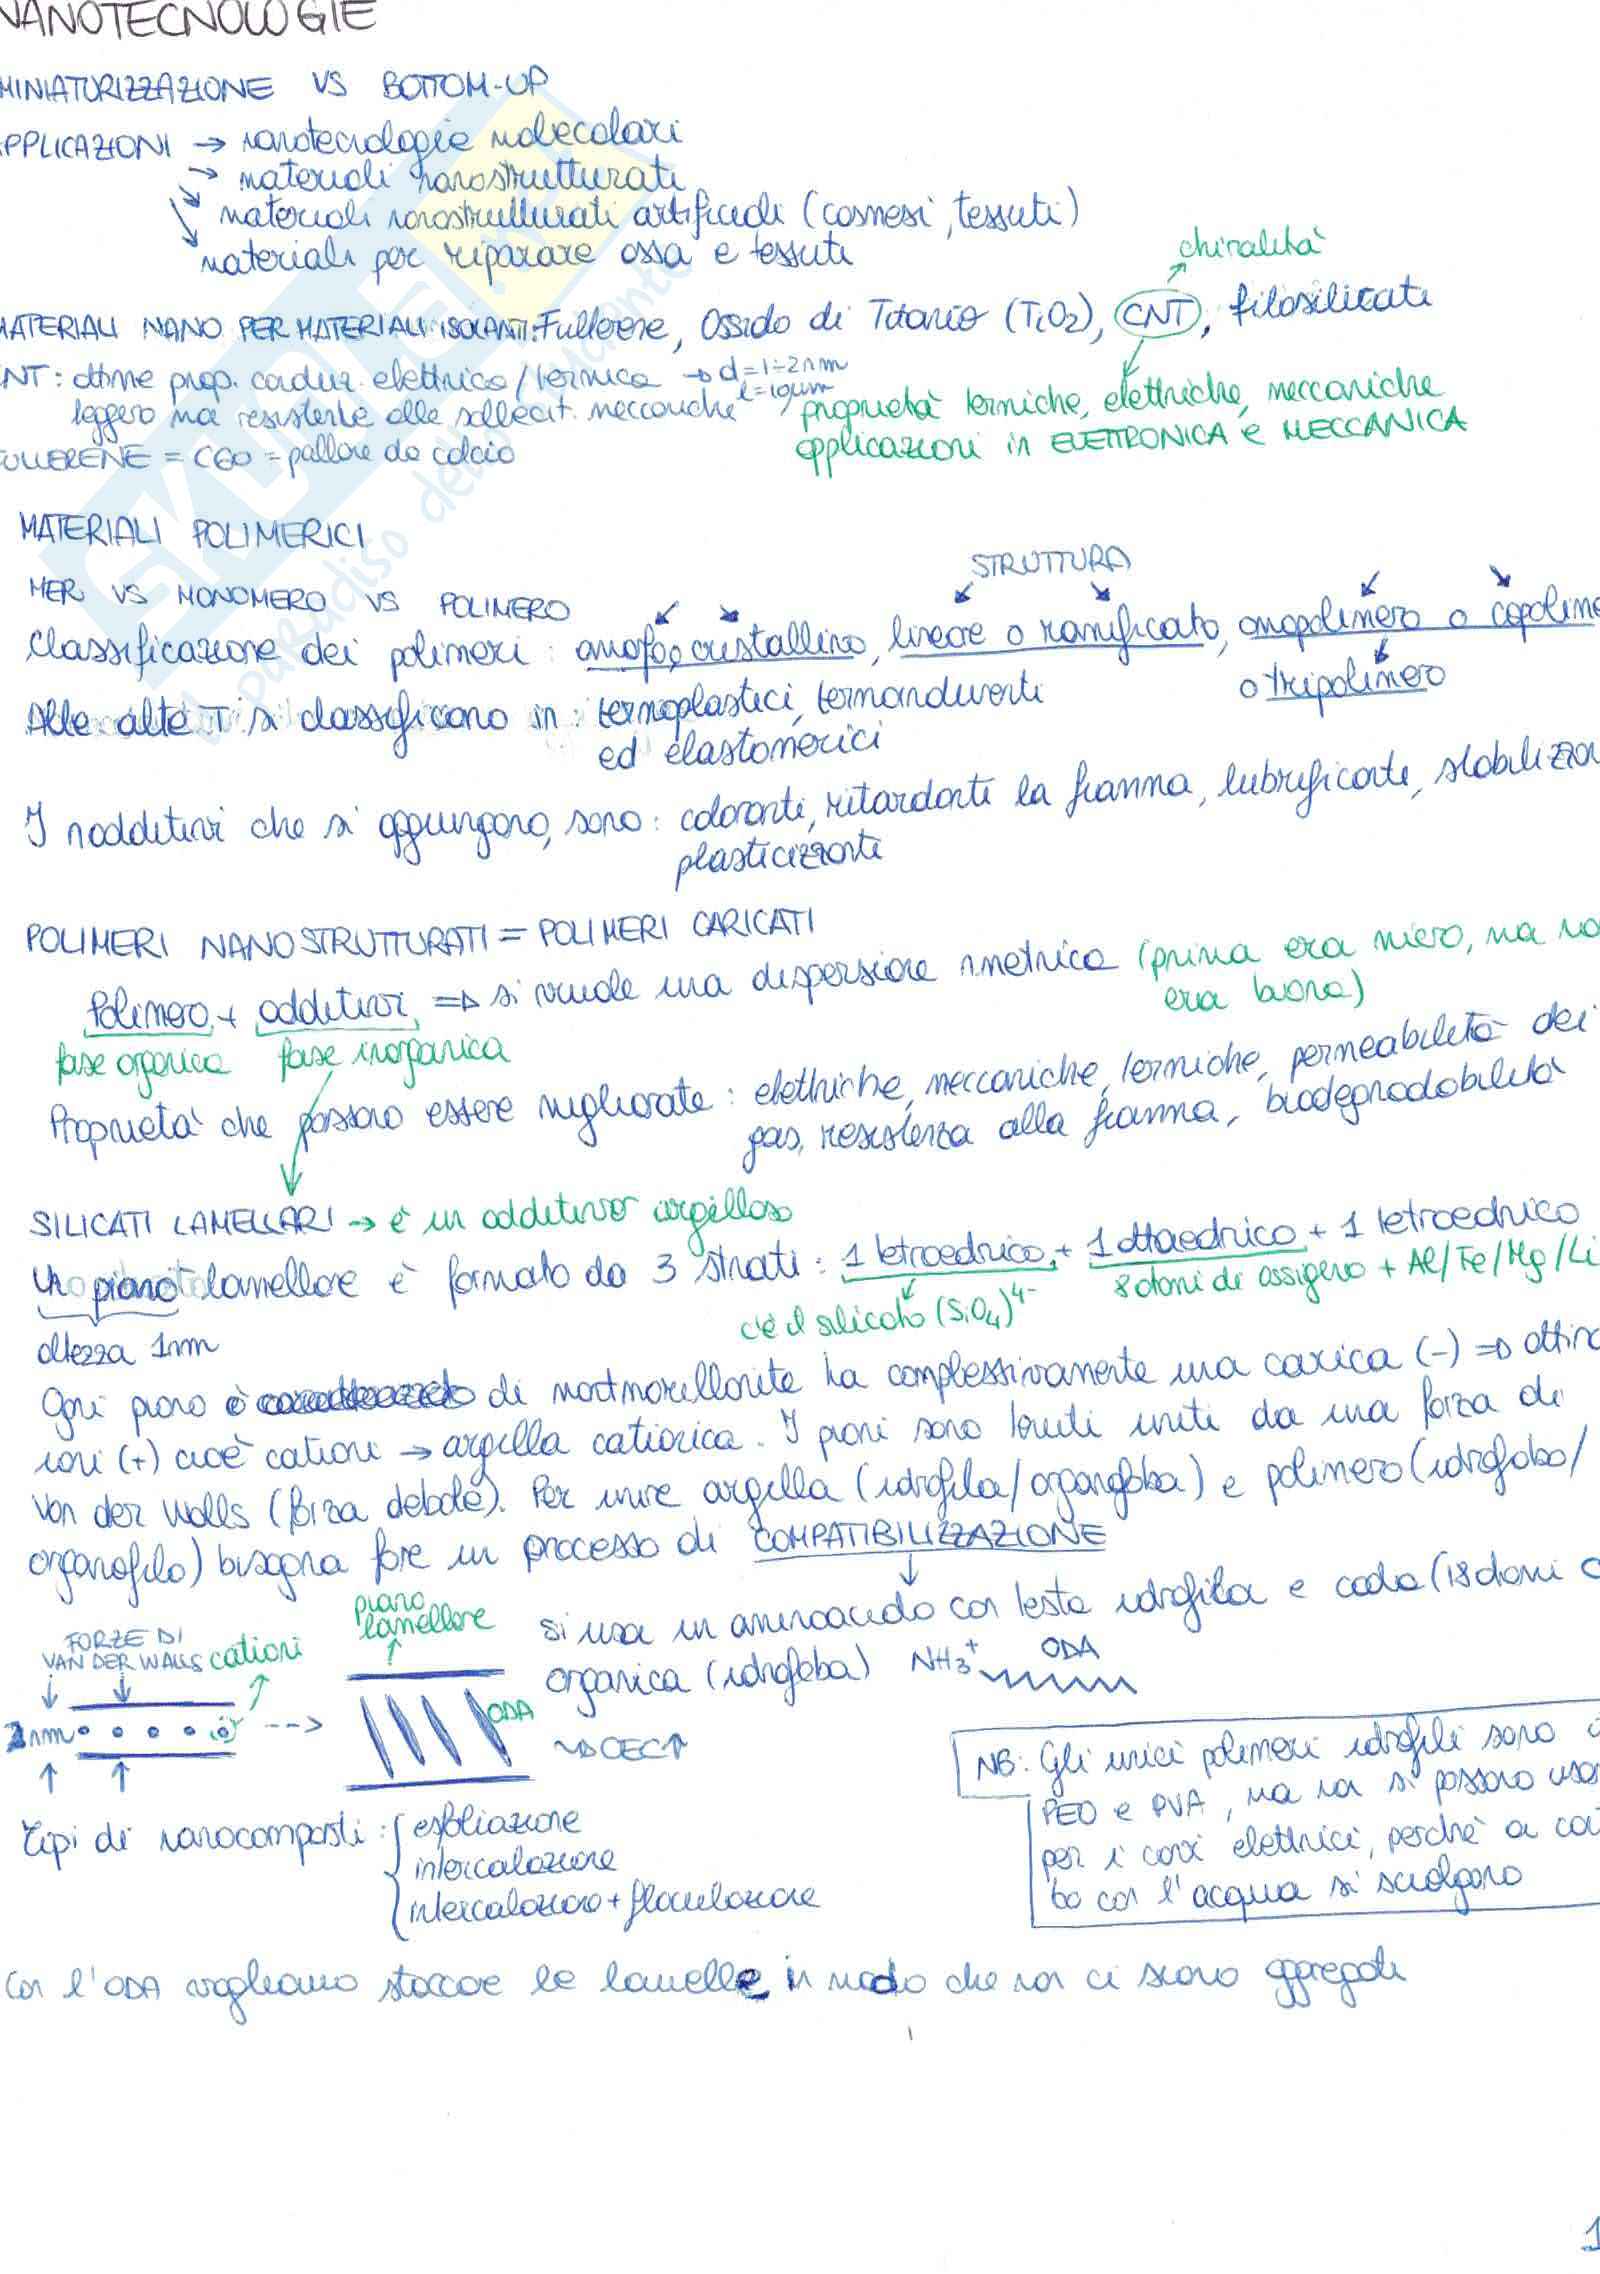 NANOTECNOLOGIE
MINIATURIZZAZIONE VS BOTTOM-UP
APPLICAZIONI → nanotecnologie molecolari
→ materiali nanostrutturati
↘ materiali nanostrutturati artificiali (cosmesi, tessuti)
↘ materiali per riparare ossa e tessuti
chiralità
MATERIALI NANO PER MATERIALI ISOLANTI: Fullerene, Ossido di Titanio (TiO2), CNT, fillosilicati
CNT: ottime prop. conduz. elettrica/termica → d=1÷2nm
l=10μm
leggero ma resistente alle sollecit. meccaniche
proprietà termiche, elettriche, meccaniche
applicazioni in ELETTRONICA e MECCANICA
FULLERENE = C60 = pallone da calcio
MATERIALI POLIMERICI
STRUTTURA
MER VS MONOMERO VS POLIMERO
Classificazione dei polimeri: amorfo o cristallino, lineare o ramificato, omopolimero o copolime
o tripolimero
Alle alte T si classificano in: termoplastici, termoindurenti
ed elastomerici
I nadditivi che si aggiungono, sono: colorante, ritardante la fiamma, lubrificante, stabilizza
plasticizzante
POLIMERI NANOSTRUTTURATI = POLIMERI CARICATI
Polimero + additivi => si vuole una dispersione nmetrica (prima era micro, ma no
era buona)
fase organica fase inorganica
Proprietà che possono essere migliorate: elettriche, meccaniche, termiche, permeabilità dei
gas, resistenza alla fiamma, biodegradabilità
SILICATI LAMELLARI → è un additivo argilloso
Un piano lamellare è formato da 3 strati: 1 tetraedrico + 1 ottaedrico + 1 tetraedrico
8 atomi di ossigeno + Al/Fe/Mg/Li
c'è il silicato (SiO4)4-
altezza 1nm
Ogni piano di montmorillonite ha complessivamente una carica (-) => attira
ioni (+) cioè cationi → argilla cationica. I piani sono tenuti uniti da una forza di
Van der Walls (forza debole). Per unire argilla (idrofila/organofoba) e polimero (idrofobo/
organofilo) bisogna fare un processo di COMPATIBILIZZAZIONE
si usa un aminoacido con testa idrofila e coda (18 atomi C
organica (idrofoba) NH3+ ODA
piano
lamellare
FORZE DI
VAN DER WALLS cationi
nm
ODA
CEC↑
NB: Gli unici polimeri idrofili sono
PEO e PVA, ma non si possono usa
per i cavi elettrici, perchè a co
to con l'acqua si sciolgono
Tipi di nanocompositi: esfoliazione
intercalazione
intercalazione + flocculazione
Con l'ODA vogliamo staccare le lamelle in modo che non ci siano aggregati
1
SKUOLA
il paradiso dello studente